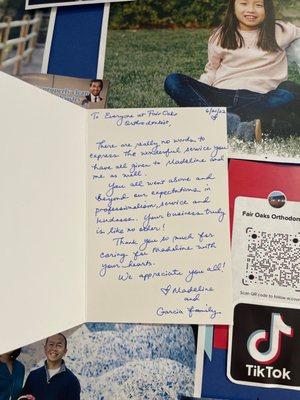 To Everyone at Fair Oaks
Orthodontist,
6/30/22
There are really no words to
express the wonderful service you
have all given to Madeline and
me as well.
You all went above and
Beyond our expectations, in
professionalism, service and
kindness. Your business truly
is like no other!
Thank you so much for
caring for Madeline with
your hearts.
We appreciate you all!
Madeline
and
Garcia family
Fair Oaks Orthodon
Scan QR code to follow accoun
TikTok